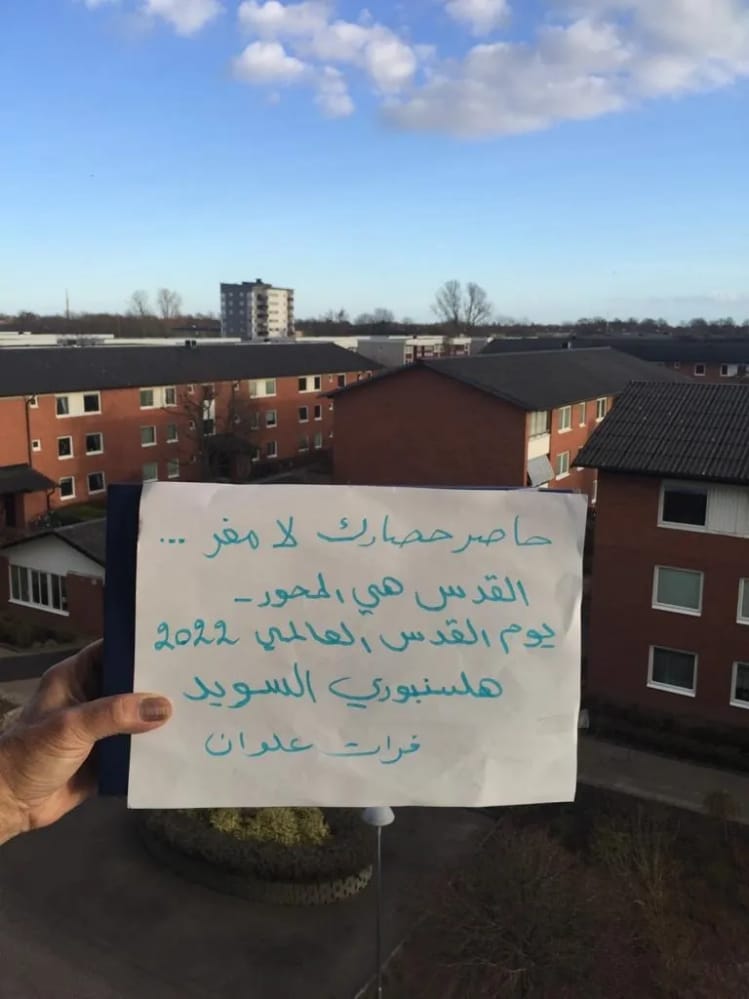 حاصر حصارك لا مفر ...
القدس هي المحور -
يوم القدس العالمي 2022
هلسنبوري السويد
فرات علوان